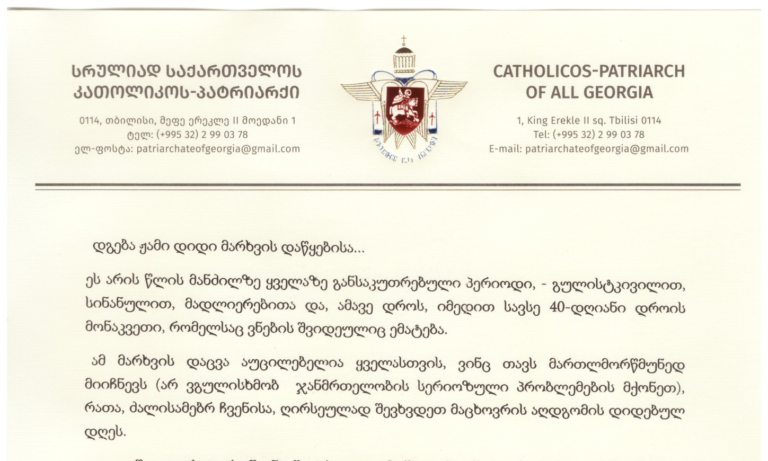 სრულიად საქართველოს
კათოლიკოს-პატრიარქი
0114, თბილისი, მეფე ერეკლე II მოედანი 1
ტელ: (+995 32) 2 99 03 78
ელ-ფოსტა: patriarchateofgeorgia@gmail.com
CATHOLICOS-PATRIARCH
OF ALL GEORGIA
1, King Erekle II sq. Tbilisi 0114
Tel: (+995 32) 2 99 03 78
E-mail: patriarchateofgeorgia@gmail.com
დგება ჟამი დიდი მარხვის დაწყებისა...
ეს არის წლის მანძილზე ყველაზე განსაკუთრებული პერიოდი, - გულისტკივილით,
სინანულით, მადლიერებითა და, ამავე დროს, იმედით სავსე 40-დღიანი დროის
მონაკვეთი, რომელსაც ვნების შვიდეულიც ემატება.
ამ მარხვის დაცვა აუცილებელია ყველასთვის, ვინც თავს მართლმორწმუნედ
მიიჩნევს (არ ვგულისხმობ ჯანმრთელობის სერიოზული პრობლემების მქონეთ),
რათა, ძალისამებრ ჩვენისა, ღირსეულად შევხვდეთ მაცხოვრის აღდგომის დიდებულ
დღეს.